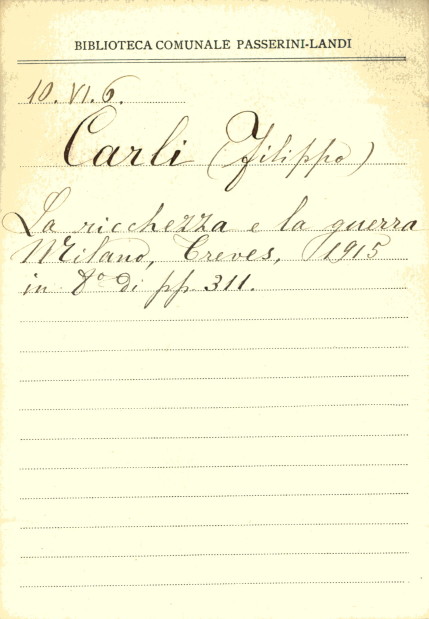 BIBLIOTECA COMUNALE PASSERINI-LANDI
10. VI. 6.
Carli (Filippo)
La ricchezza e la guerra
Milano, Treves, 1915
in 8° di pp. 311.